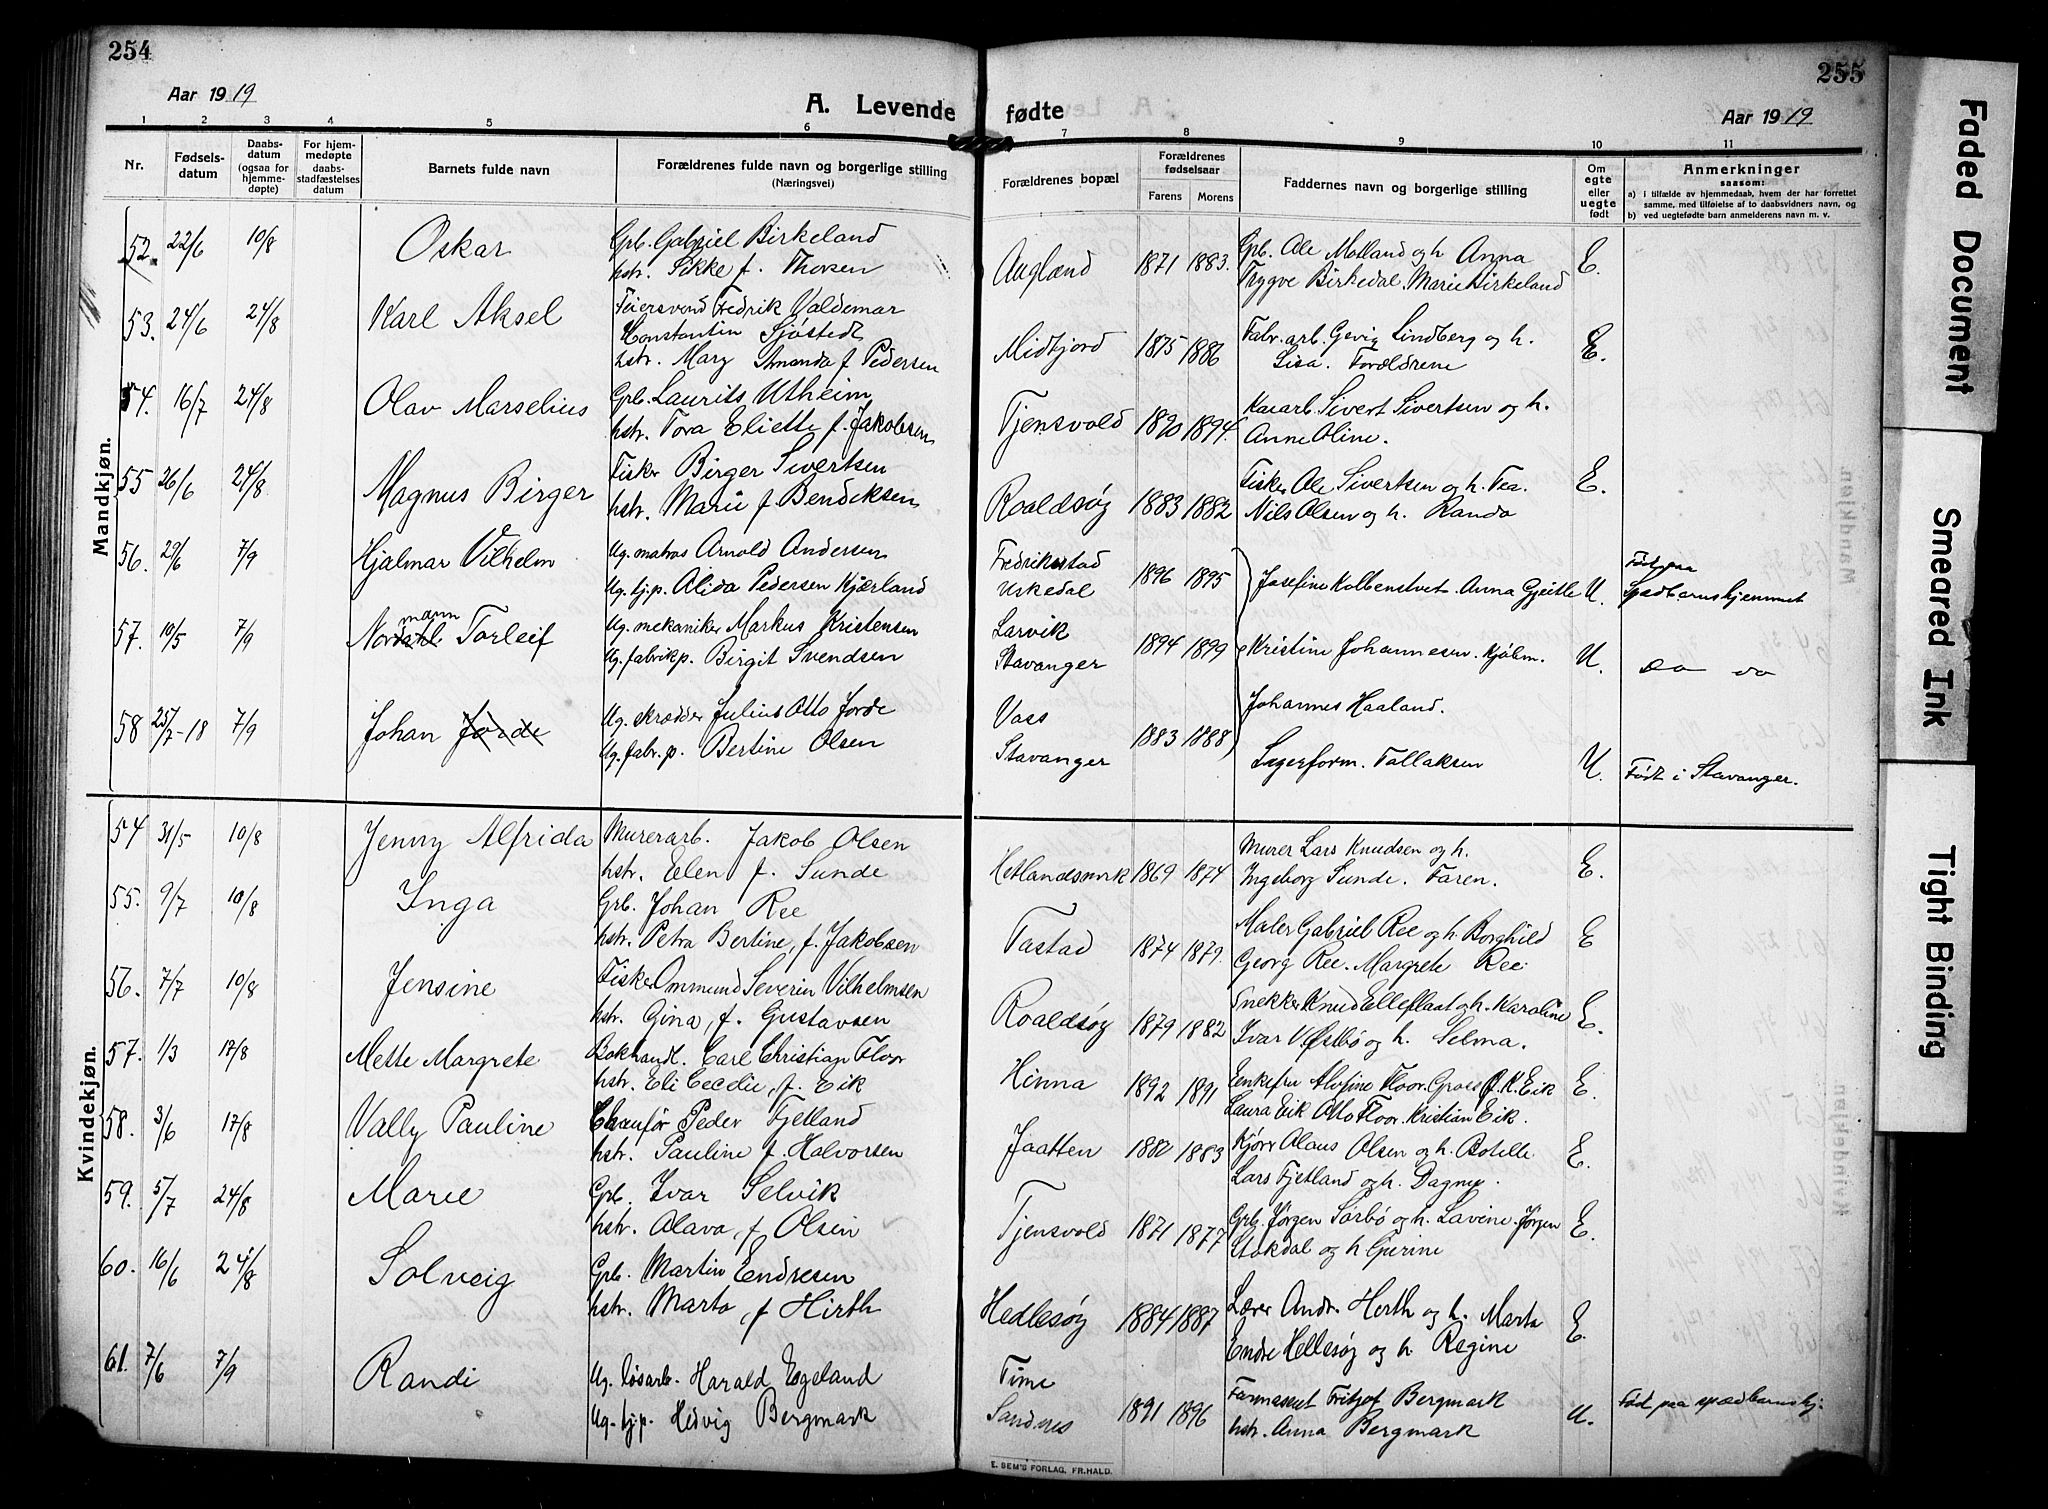 254
Aar 1919
A. Levende
1 2 3 4 5 6
Nr.
Fødsels-
datum
Daabs-
datum
(ogsaa for
hjemme-
døpte)
For hjem-
medøpte
daabs-
stadfæstelses
datum
Barnets fulde navn
Forældrenes fulde navn og borgerlige stilling
(Næringsvei)
Mandkjøn.
52. 22/6 10/8 Oskar Grb. Gabriel Birkeland
hstr. Sikke f. Thorsen
53. 24/6 24/8 Karl Aksel Feiersvend Fredrik Valdemar
Konstantin Sjöstedt
hstr. Mary Amanda f Pedersen
54. 16/7 24/8 Olav Marselius Grb. Laurits Utheim
hstr. Tora Eliette f. Jakobsen
55 26/6 24/8 Magnus Birger Fisker Birger Sivertsen
hstr. Marie f Bendiksen
56. 29/6 7/9 Hjalmar Vilhelm Ug. matros Arnold Andersen
Ug. tj.p. Alida Pedersen Kjærland
57. 10/5 7/9 Nordahl mann Torleif Ug. mekaniker Markus Kristensen
Ug. fabrikp. Birgit Svendsen
58 25/7-18 7/9 Johan Jorde Ug. skrædder Julius Otto Jorde
Ug. fabr. p. Bertine Olsen
Kvindekjøn.
54 31/5 10/8 Jenny Alfrida Murerarb. Jakob Olsen
hstr. Elen f. Sunde
55. 9/7 10/8 Inga Grb. Johan Ree
hstr. Petra Bertine, f. Jakobsen
56. 7/7 10/8 Jensine Fisker Ommund Severin Vilhelmsen
hstr. Gina, f. Gustavsen
57. 1/3 17/8 Mette Margrete Bokhandl. Carl Christian Floor
hstr. Eli Cecilie, f. Eik
58. 3/6 17/8 Vally Pauline Chauffør Peder Fjelland
hstr. Pauline f Halvorsen
59. 5/7 24/8 Marie Grb. Ivar Selvik
hstr. Alava, f Olsen
60. 16/6 24/8 Solveig Grb. Martin Endresen
hstr. Marta, f Hirth
61. 7/6 7/9 Randi Ug. løsarb. Harald Egeland
Ug. tjp. Hedvig Bergmark
255
fødte
Aar 1919
7 8 9 10 11
Forældrenes bopæl
Forældrenes
fødselsaar
Farens Morens
Faddernes navn og borgerlige stilling
Om
egte
eller
uegte
født
Anmerkninger
saasom:
a) i tilfælde av hjemmedaab, hvem der har forrettet
samme, med tilføielse av to daabsvidners navn, og
b) ved uegtefødte barn anmelderens navn m. v.
Auglænd 1871 1883. Grb. Ole Molland og h Anna E.
Trygve Birkedal. Marie Birkeland
Midtjord 1875 1886 Fabr. arb. Gevig Lindberg og h. E.
Lisa. Forældrene
Tjensvold 1890 1894. Kaiarb. Sivert Sivertsen og h.
Anne Oline.
Roaldsøy 1883 1882 Fisker Ole Sivertsen og h. Tea. E.
Nils Olsen og h. Randa
Fredrikstad
Uskedal 1896 1895 Josefine Kolbenstvet. Anna Gjeitle U. Født paa
Spædbarnshjemmet
Larvik
Stavanger 1894 1899 Kristine Johannesen. Kjølm. U. do do
Voss
Stavanger 1883 1888 Johannes Haaland.
Lagerform. Tallaksen U. Født i Stavanger.
Hetlandsmrk 1869 1874 Murer Lars Knudsen og h. E.
Ingeborg Sunde. Faren.
Tastad 1874 1879. Maler Gabriel Ree og h Borghild E
Georg Ree. Margrete Ree.
Roaldsøy 1879 1882 Snekker Knud Elleflaat og h. Karoline E.
Ivar V Østbø og h. Selma.
Hinna 1892 1891 Enkefru Alvfine Floor. Gross. P. K. Eik E.
Laura Eik Otto Floor. Kristian Eik.
Jaatten 1882 1883 Kjører Olaus Olsen og h. Botille E.
Lars Fjetland og h. Dagny.
Tjensvold 1871 1877 Grb. Jørgen Sørbø og h. Lavine. Jørgen E.
Stokdal og h Gurine
Hedlesøy 1884 1887 Lærer Andr. Herth og h. Marta E.
Endre Hellesøy og h. Regine
Time
Sandnes 1891 1896 Farmaseut Fritjof Bergmark U. Født paa spædbarnshj.
hstr. Anna Bergmark
E. SEM'S FORLAG, FR.HALD.
Faded Document
Smeared Ink
Tight Binding